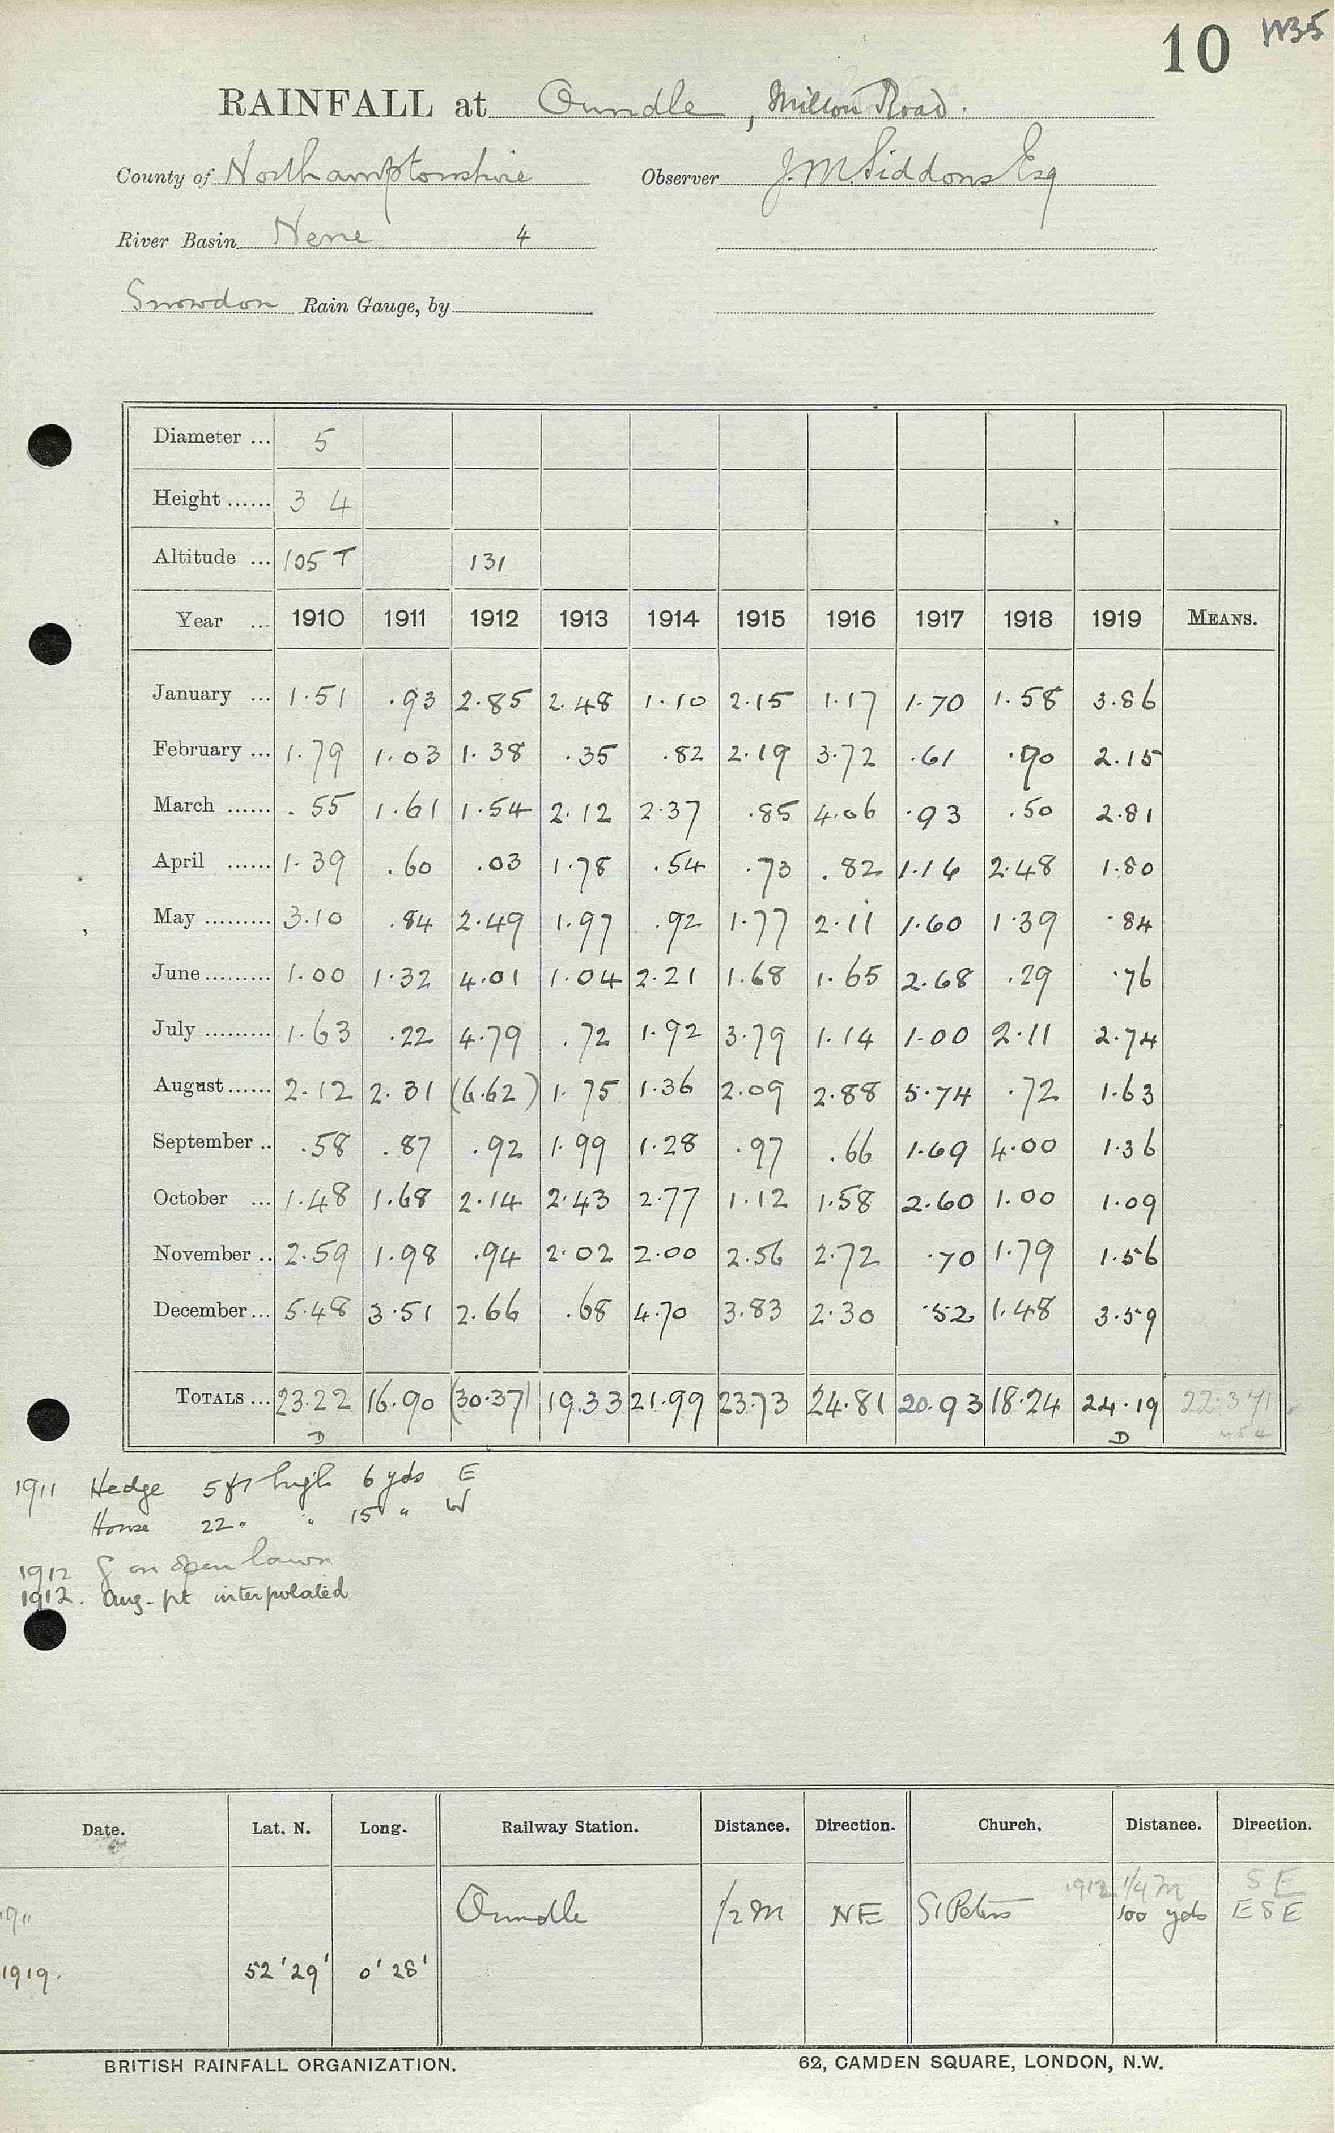 10 W35
RAINFALL at Oundle, Milton Road.
County of Northamptonshire Observer J.M. Siddons Esq
River Basin Nene 4
Snowdon Rain Gauge, by
Diameter ... 5
Height ...... 3 4
Altitude ... 105 T 131
Year ... 1910 1911 1912 1913 1914 1915 1916 1917 1918 1919 MEANS.
January ... 1.51 .93 2.85 2.48 1.10 2.15 1.17 1.70 1.58 3.86
February ... 1.79 1.03 1.38 .35 .82 2.19 3.72 .61 .90 2.15
March ...... .55 1.61 1.54 2.12 2.37 .85 4.06 .93 .50 2.81
April ...... 1.39 .60 .03 1.78 .54 .73 .82 1.16 2.48 1.80
May ......... 3.10 .84 2.49 1.97 .92 1.77 2.11 1.60 1.39 .84
June ......... 1.00 1.32 4.01 1.04 2.21 1.68 1.65 2.68 .29 .76
July ......... 1.63 .22 4.79 .72 1.92 3.79 1.14 1.00 2.11 2.74
August ...... 2.12 2.31 (6.62) 1.75 1.36 2.09 2.88 5.74 .72 1.63
September .. .58 .87 .92 1.99 1.28 .97 .66 1.69 4.00 1.36
October ... 1.48 1.68 2.14 2.43 2.77 1.12 1.58 2.60 1.00 1.09
November .. 2.59 1.98 .94 2.02 2.00 2.56 2.72 .70 1.79 1.56
December ... 5.48 3.51 2.66 .68 4.70 3.83 2.30 .52 1.48 3.59
TOTALS ... 23.22 16.90 (30.37) 19.33 21.99 23.73 24.81 20.93 18.24 24.19 22.371
D D
1911 Hedge 5 ft high 6 yds E
House 22 " " 15 " W
1912 G on open lawn
1912. Aug - pt interpolated
Date. Lat. N. Long. Railway Station. Distance. Direction. Church. Distance. Direction.
1912 1/4 m SE
1911 Oundle 1/2 m NE St Peters 100 yds ESE
1919. 52' 29' 0' 28'
BRITISH RAINFALL ORGANIZATION. 62, CAMDEN SQUARE, LONDON, N.W.